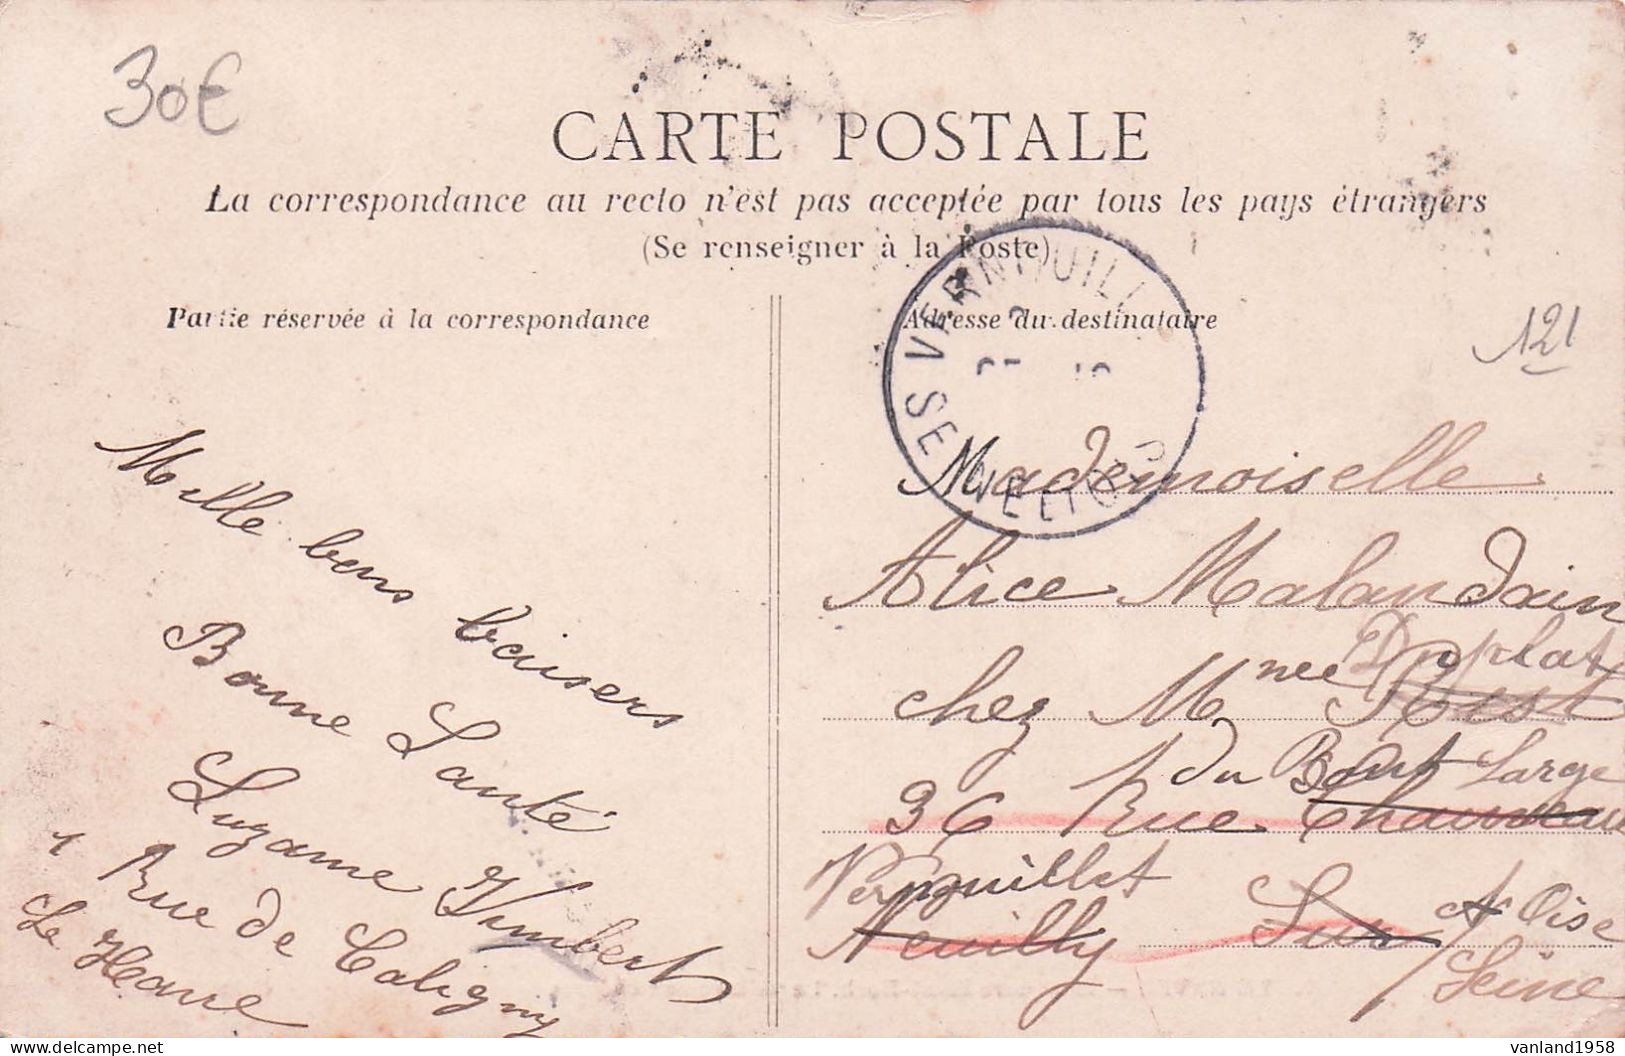 30€
CARTE POSTALE
La correspondance au recto n'est pas acceptée par tous les pays étrangers
(Se renseigner à la Poste)
Partie réservée à la correspondance
Adresse du destinataire
121
VERNOUILL
SE
Mille bons baisers
Bonne Santé
Suzanne Humbert
1 Rue de Caligny
Le Havre
Mademoiselle
Alice Malandain
Duplat
chez Mme
du Bout Large
36 Rue Chauveau
Vernouillet
S et Oise
Neuilly Sur
Seine
vanland1958